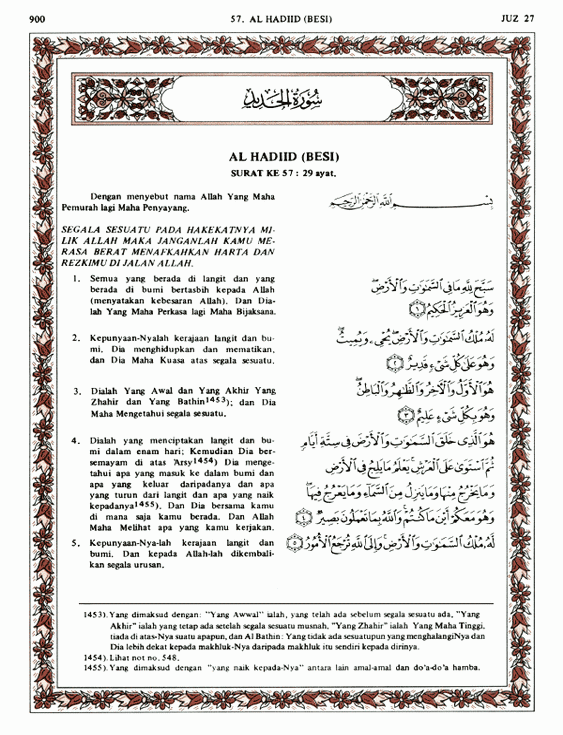 900
57. AL HADIID (BESI)
JUZ 27
سُورَةُ الْحَدِيدِ
AL HADIID (BESI)
SURAT KE 57 : 29 ayat.
Dengan menyebut nama Allah Yang Maha
Pemurah lagi Maha Penyayang.
بِسْمِ اللَّهِ الرَّحْمَٰنِ الرَّحِيمِ
SEGALA SESUATU PADA HAKEKATNYA MI-
LIK ALLAH MAKA JANGANLAH KAMU ME-
RASA BERAT MENAFKAHKAN HARTA DAN
REZKIMU DI JALAN ALLAH.
1. Semua yang berada di langit dan yang
berada di bumi bertasbih kepada Allah
(menyatakan kebesaran Allah). Dan Dia-
lah Yang Maha Perkasa lagi Maha Bijaksana.
سَبَّحَ لِلَّهِ مَا فِي السَّمَٰوَٰتِ وَالْأَرْضِ
وَهُوَ الْعَزِيزُ الْحَكِيمُ ۝١
2. Kepunyaan-Nyalah kerajaan langit dan bu-
mi, Dia menghidupkan dan mematikan,
dan Dia Maha Kuasa atas segala sesuatu.
لَهُ مُلْكُ السَّمَٰوَٰتِ وَالْأَرْضِ يُحْيِي وَيُمِيتُ
وَهُوَ عَلَىٰ كُلِّ شَيْءٍ قَدِيرٌ ۝٢
3. Dialah Yang Awal dan Yang Akhir Yang
Zhahir dan Yang Bathin1453); dan Dia
Maha Mengetahui segala sesuatu.
هُوَ الْأَوَّلُ وَالْآخِرُ وَالظَّاهِرُ وَالْبَاطِنُ
وَهُوَ بِكُلِّ شَيْءٍ عَلِيمٌ ۝٣
4. Dialah yang menciptakan langit dan bu-
mi dalam enam hari; Kemudian Dia ber-
semayam di atas 'Arsy1454) Dia menge-
tahui apa yang masuk ke dalam bumi dan
apa yang keluar daripadanya dan apa
yang turun dari langit dan apa yang naik
kepadanya1455). Dan Dia bersama kamu
di mana saja kamu berada. Dan Allah
Maha Melihat apa yang kamu kerjakan.
هُوَ الَّذِي خَلَقَ السَّمَٰوَٰتِ وَالْأَرْضَ فِي سِتَّةِ أَيَّامٍ
ثُمَّ اسْتَوَىٰ عَلَى الْعَرْشِ يَعْلَمُ مَا يَلِجُ فِي الْأَرْضِ
وَمَا يَخْرُجُ مِنْهَا وَمَا يَنزِلُ مِنَ السَّمَاءِ وَمَا يَعْرُجُ فِيهَا
وَهُوَ مَعَكُمْ أَيْنَ مَا كُنتُمْ وَاللَّهُ بِمَا تَعْمَلُونَ بَصِيرٌ ۝٤
5. Kepunyaan-Nya-lah kerajaan langit dan
bumi. Dan kepada Allah-lah dikembali-
kan segala urusan.
لَهُ مُلْكُ السَّمَٰوَٰتِ وَالْأَرْضِ وَإِلَى اللَّهِ تُرْجَعُ الْأُمُورُ ۝٥
1453). Yang dimaksud dengan: "Yang Awwal" ialah, yang telah ada sebelum segala sesuatu ada, "Yang
Akhir" ialah yang tetap ada setelah segala sesuatu musnah, "Yang Zhahir" ialah Yang Maha Tinggi,
tiada di atas-Nya suatu apapun, dan Al Bathin: Yang tidak ada sesuatupun yang menghalangiNya dan
Dia lebih dekat kepada makhluk-Nya daripada makhluk itu sendiri kepada dirinya.
1454). Lihat not no. 548.
1455). Yang dimaksud dengan "yang naik kepada-Nya" antara lain amal-amal dan do'a-do'a hamba.